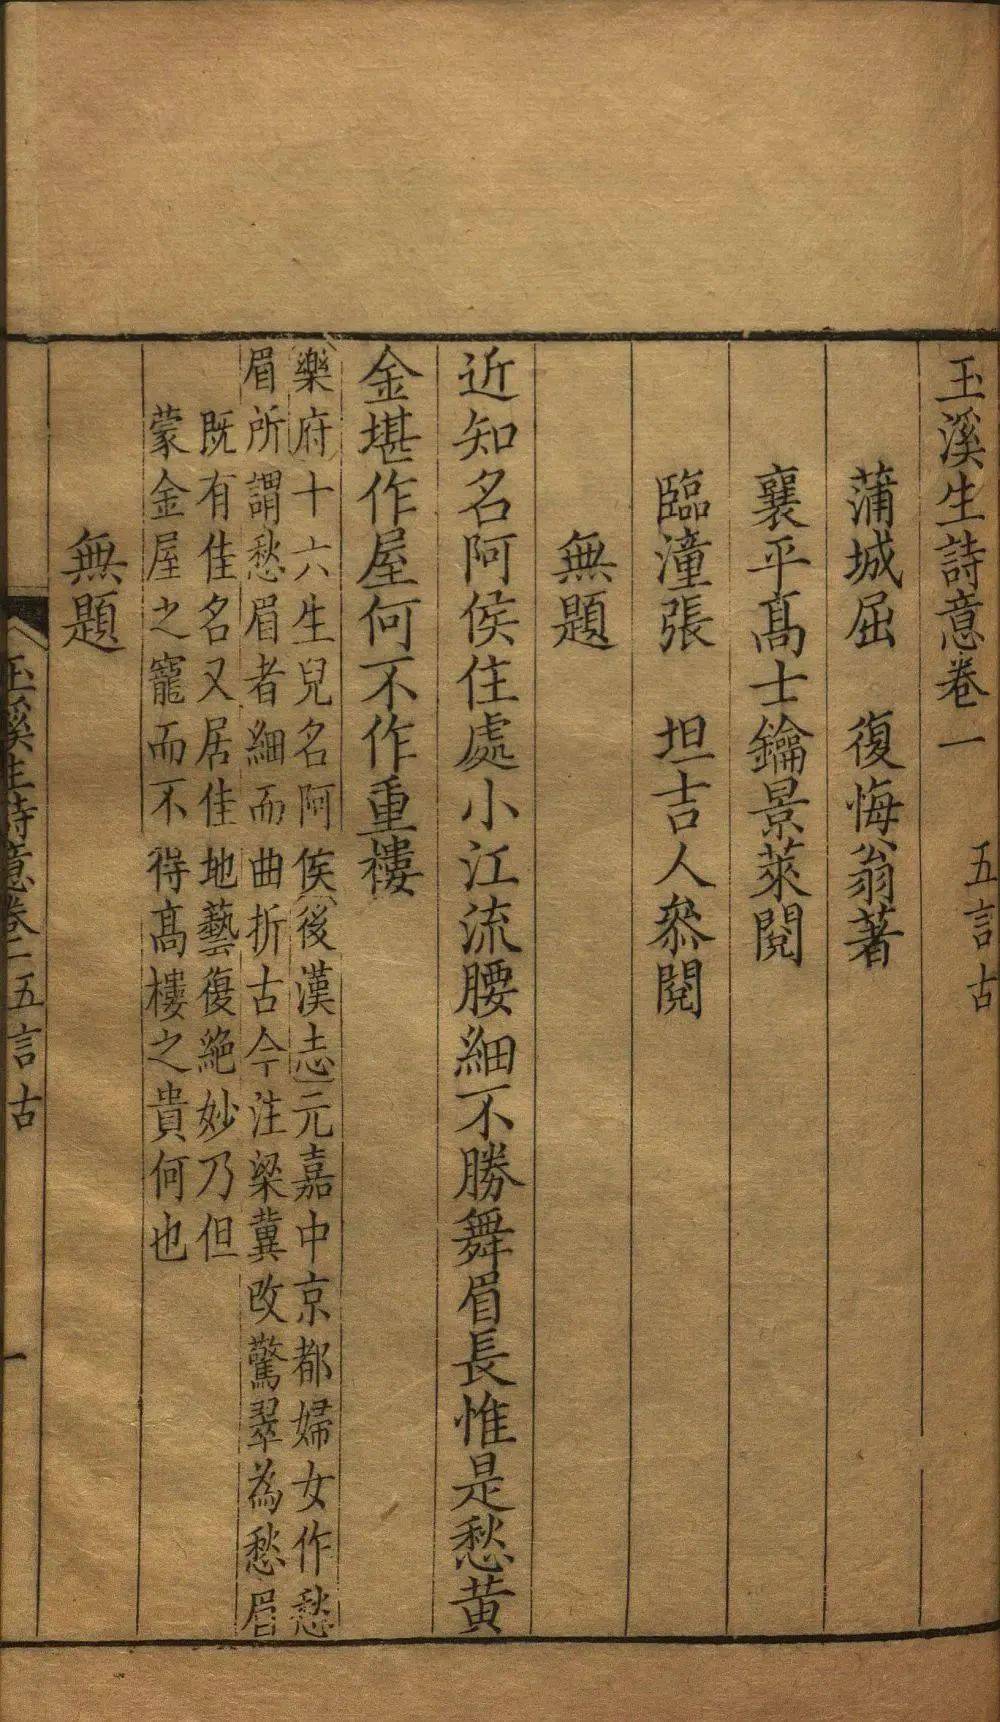 玉溪生詩意卷一
五言古
蒲城屈　復悔翁著
襄平髙士鑰景萊閱
臨潼張　坦吉人叅閱
無題
近知名阿侯住處小江流腰細不勝舞眉長惟是愁黄
金堪作屋何不作重樓
樂府十六生兒名阿侯後漢志元嘉中京都婦女作愁
眉所謂愁眉者細而曲折古今注梁冀改驚翠為愁眉
既有佳名又居佳地藝復絶妙乃但
蒙金屋之寵而不得髙樓之貴何也
無題
玉溪生詩意卷一五言古
一